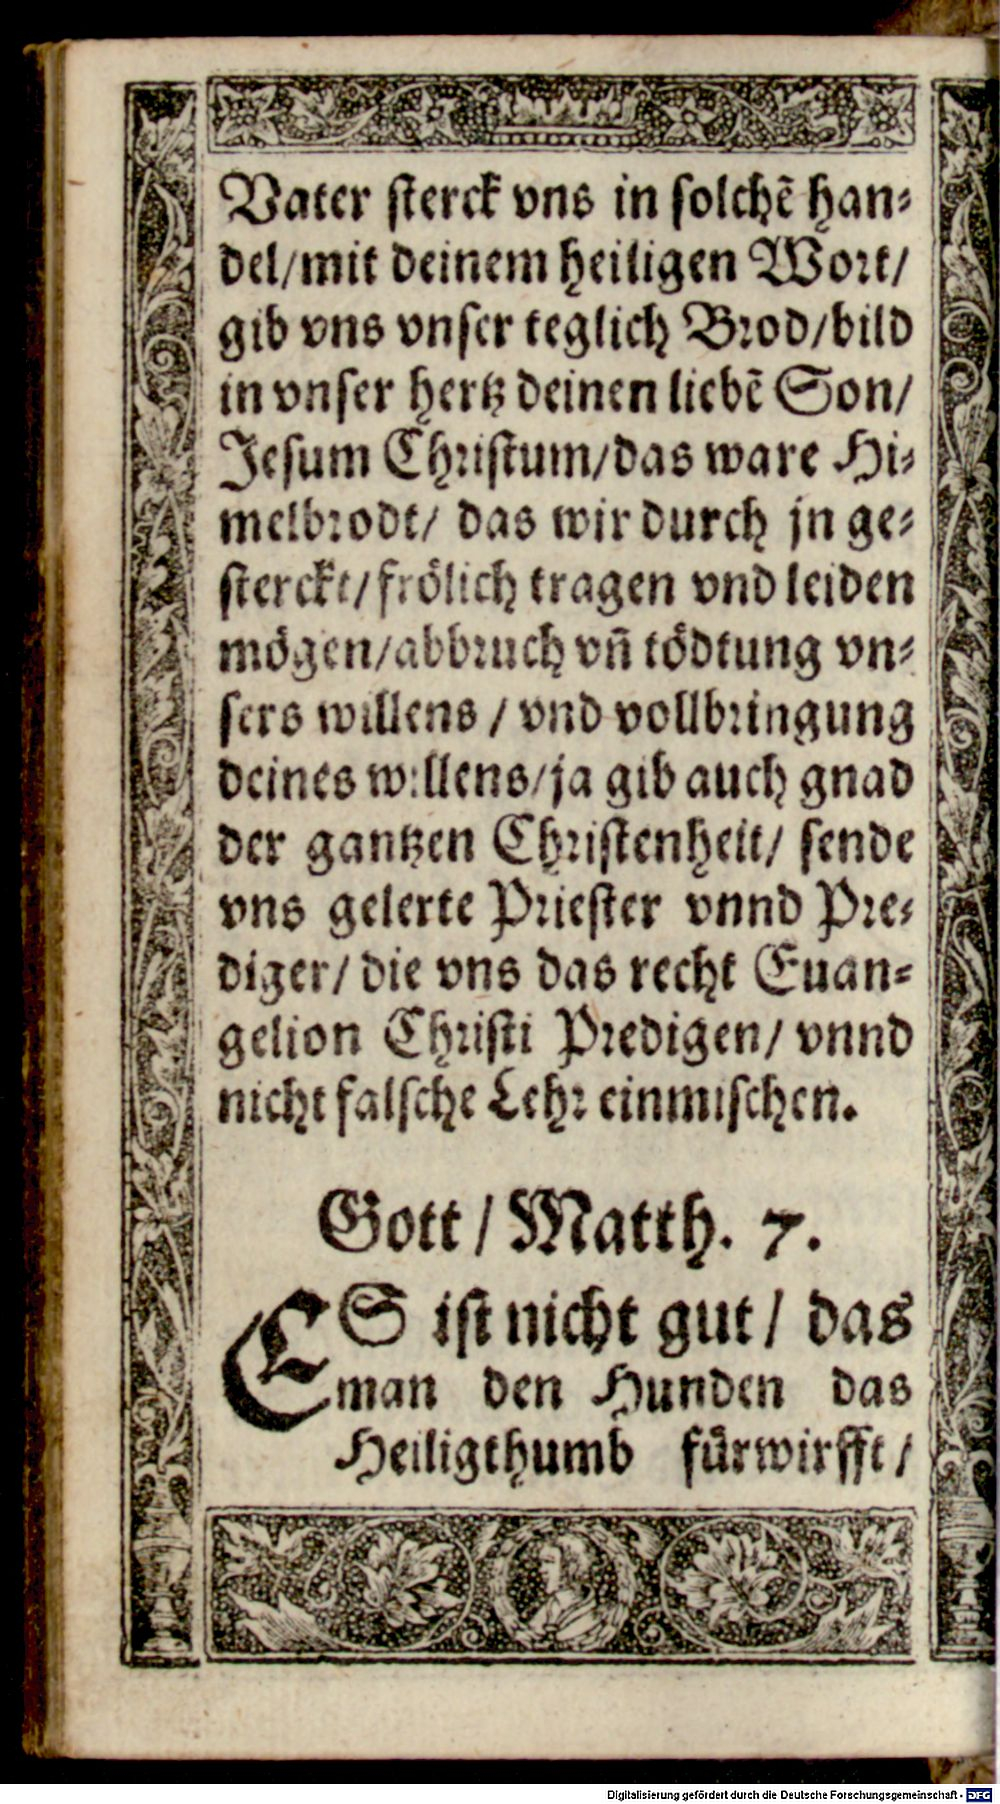 Vater sterck vns in solchẽ han-
del/mit deinem heiligen Wort/
gib vns vnser teglich Brod/bild
in vnser hertz deinen liebẽ Son/
Jesum Christum/das ware Hi-
melbrodt/ das wir durch jn ge-
sterckt/frölich tragen vnd leiden
mögen/abbruch vñ tödtung vn-
sers willens / vnd vollbringung
deines willens/ja gib auch gnad
der gantzen Christenheit/ sende
vns gelerte Priester vnnd Pre-
diger/ die vns das recht Euan-
gelion Christi Predigen/ vnnd
nicht falsche Lehr einmischen.
Gott/ Matth. 7.
ES ist nicht gut/ das
man den Hunden das
Heiligthumb fürwirfft/
Digitalisierung gefördert durch die Deutsche Forschungsgemeinschaft - DFG